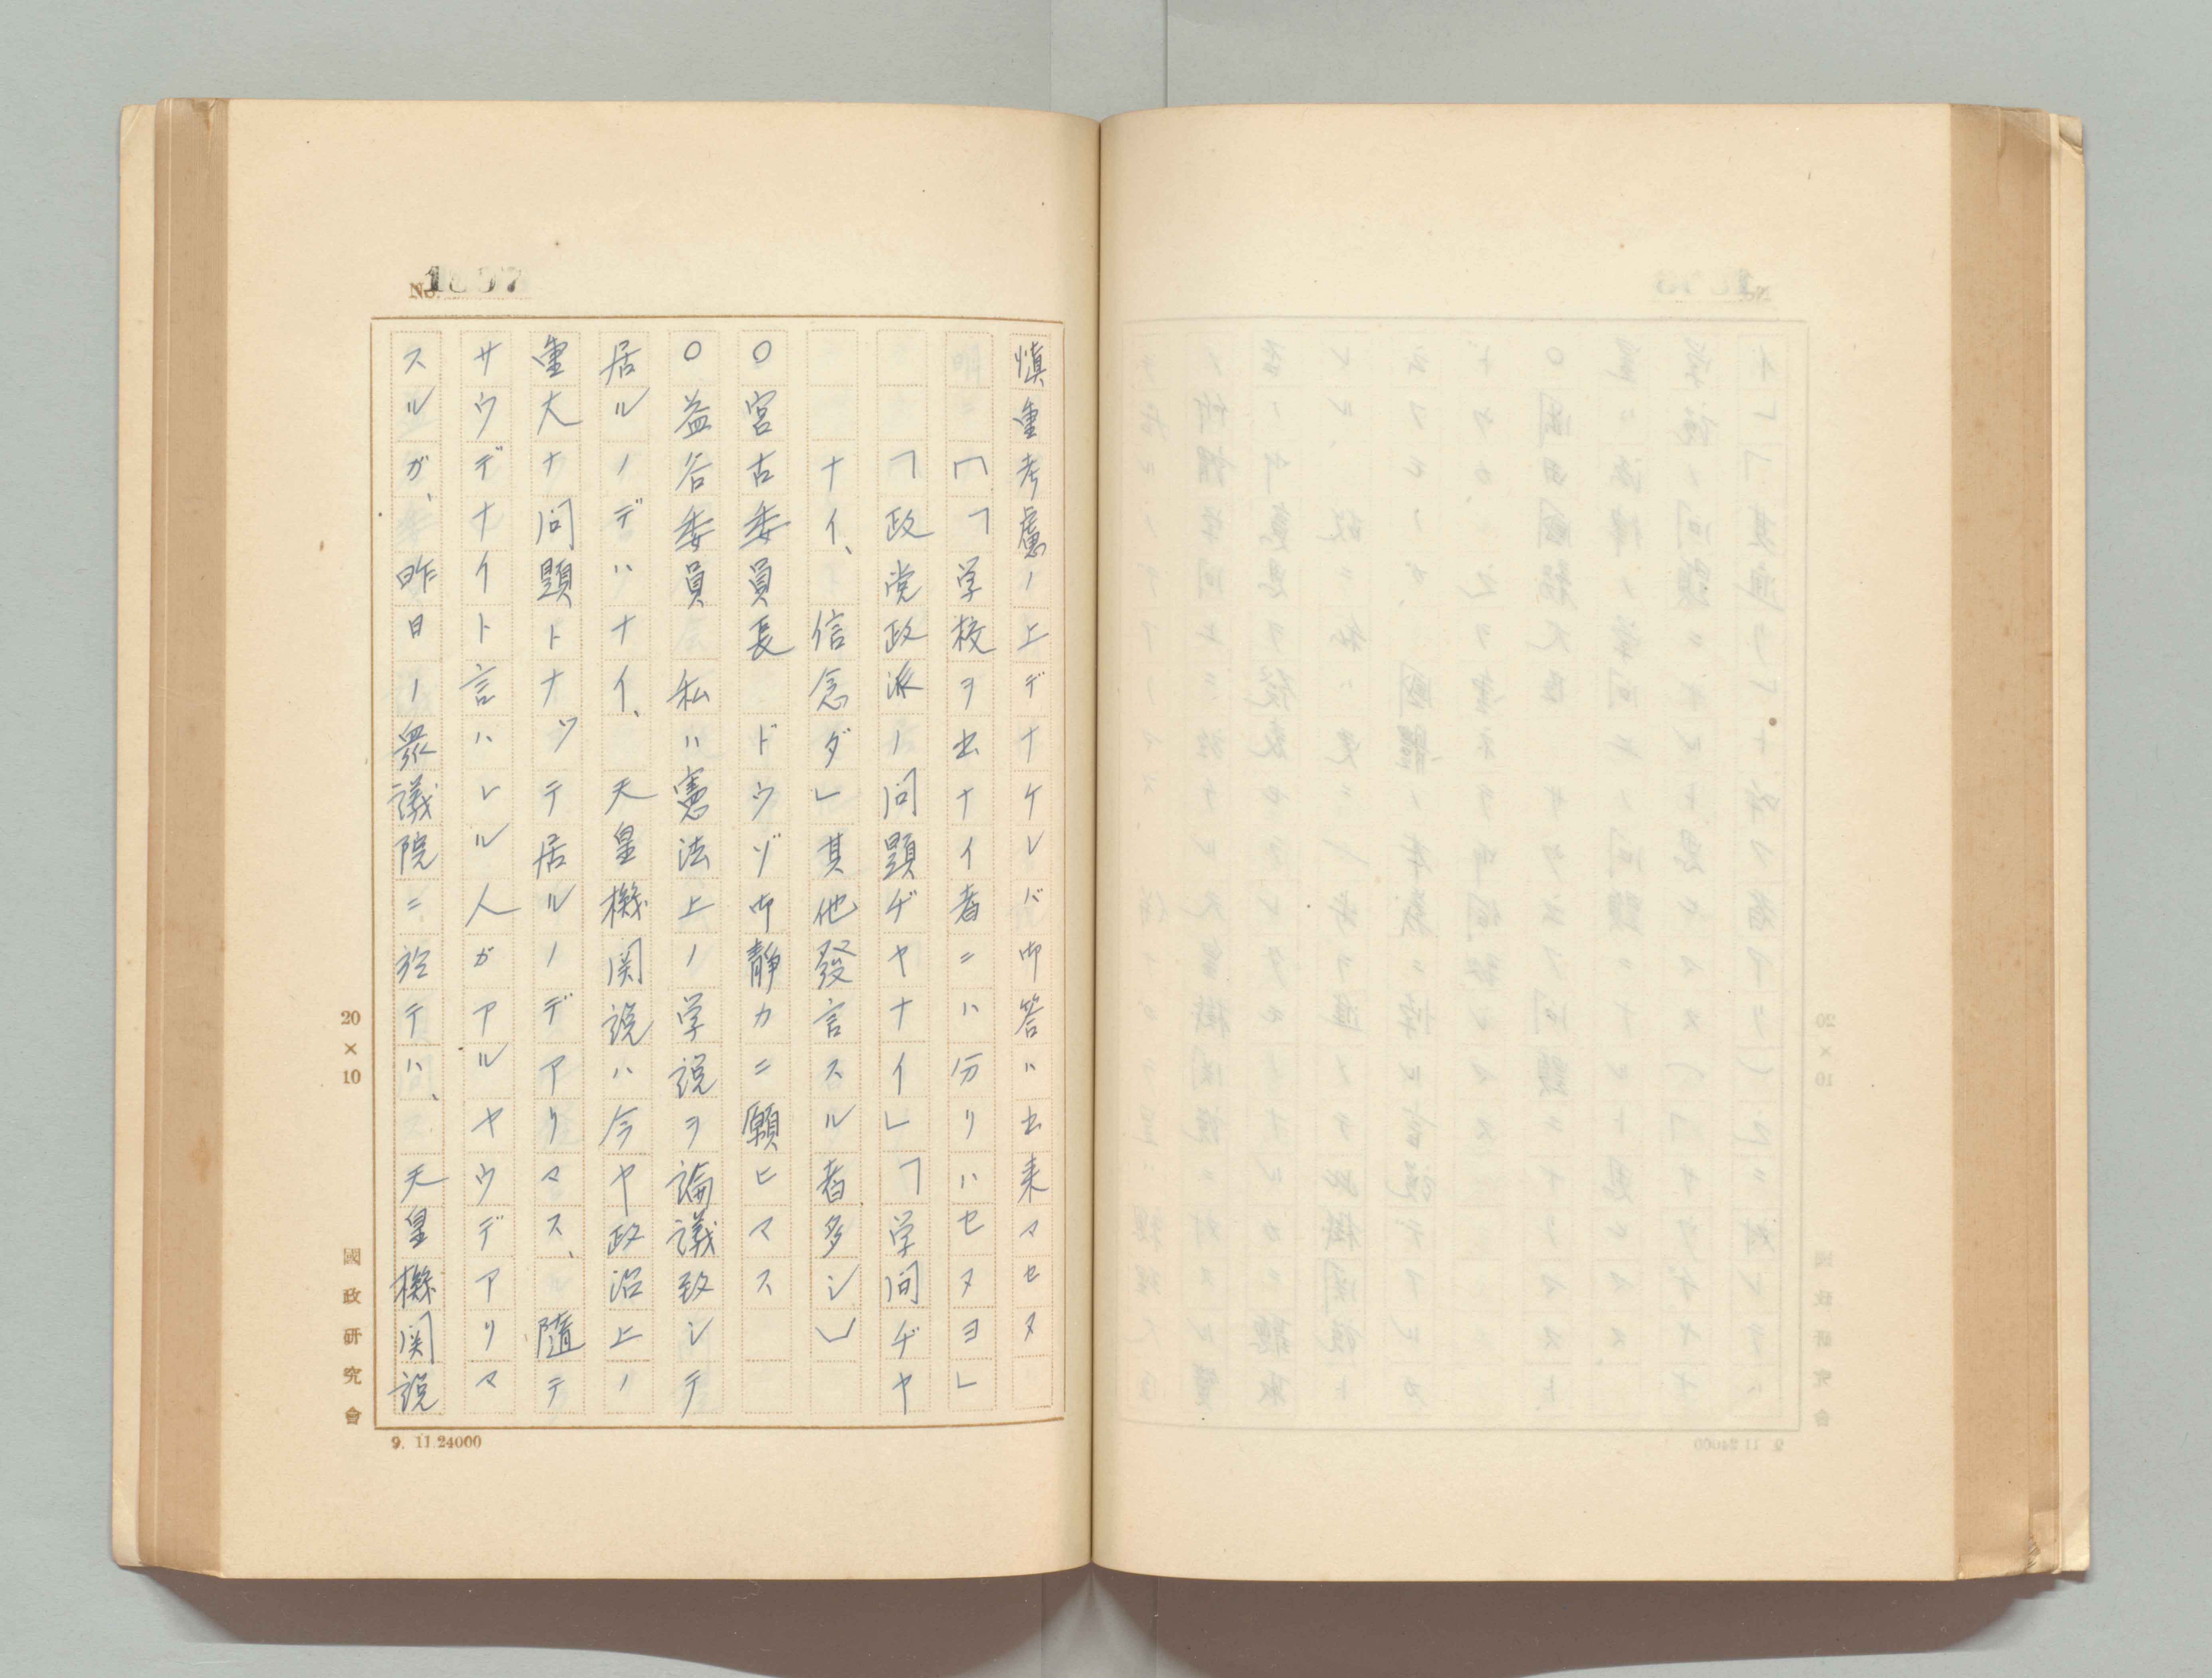 No. 1897
慎重考慮ノ上デナケレバ御答ハ出来マセヌ
〔「学校ヲ出ナイ者ニハ分リハセヌヨ」
「政党政派ノ問題ヂヤナイ」「学問ヂヤ
ナイ、信念ダ」其他発言スル者多シ〕
○宮古委員長　ドウゾ御静カニ願ヒマス
○益谷委員　私ハ憲法上ノ学説ヲ論議致シテ
居ルノデハナイ、天皇機関説ハ今ヤ政治上ノ
重大ナ問題トナツテ居ルノデアリマス、随テ
サウデナイト言ハレル人ガアルヤウデアリマ
スルガ、昨日ノ衆議院ニ於テハ、天皇機関説
20×10
國政研究會
9. 11.24000